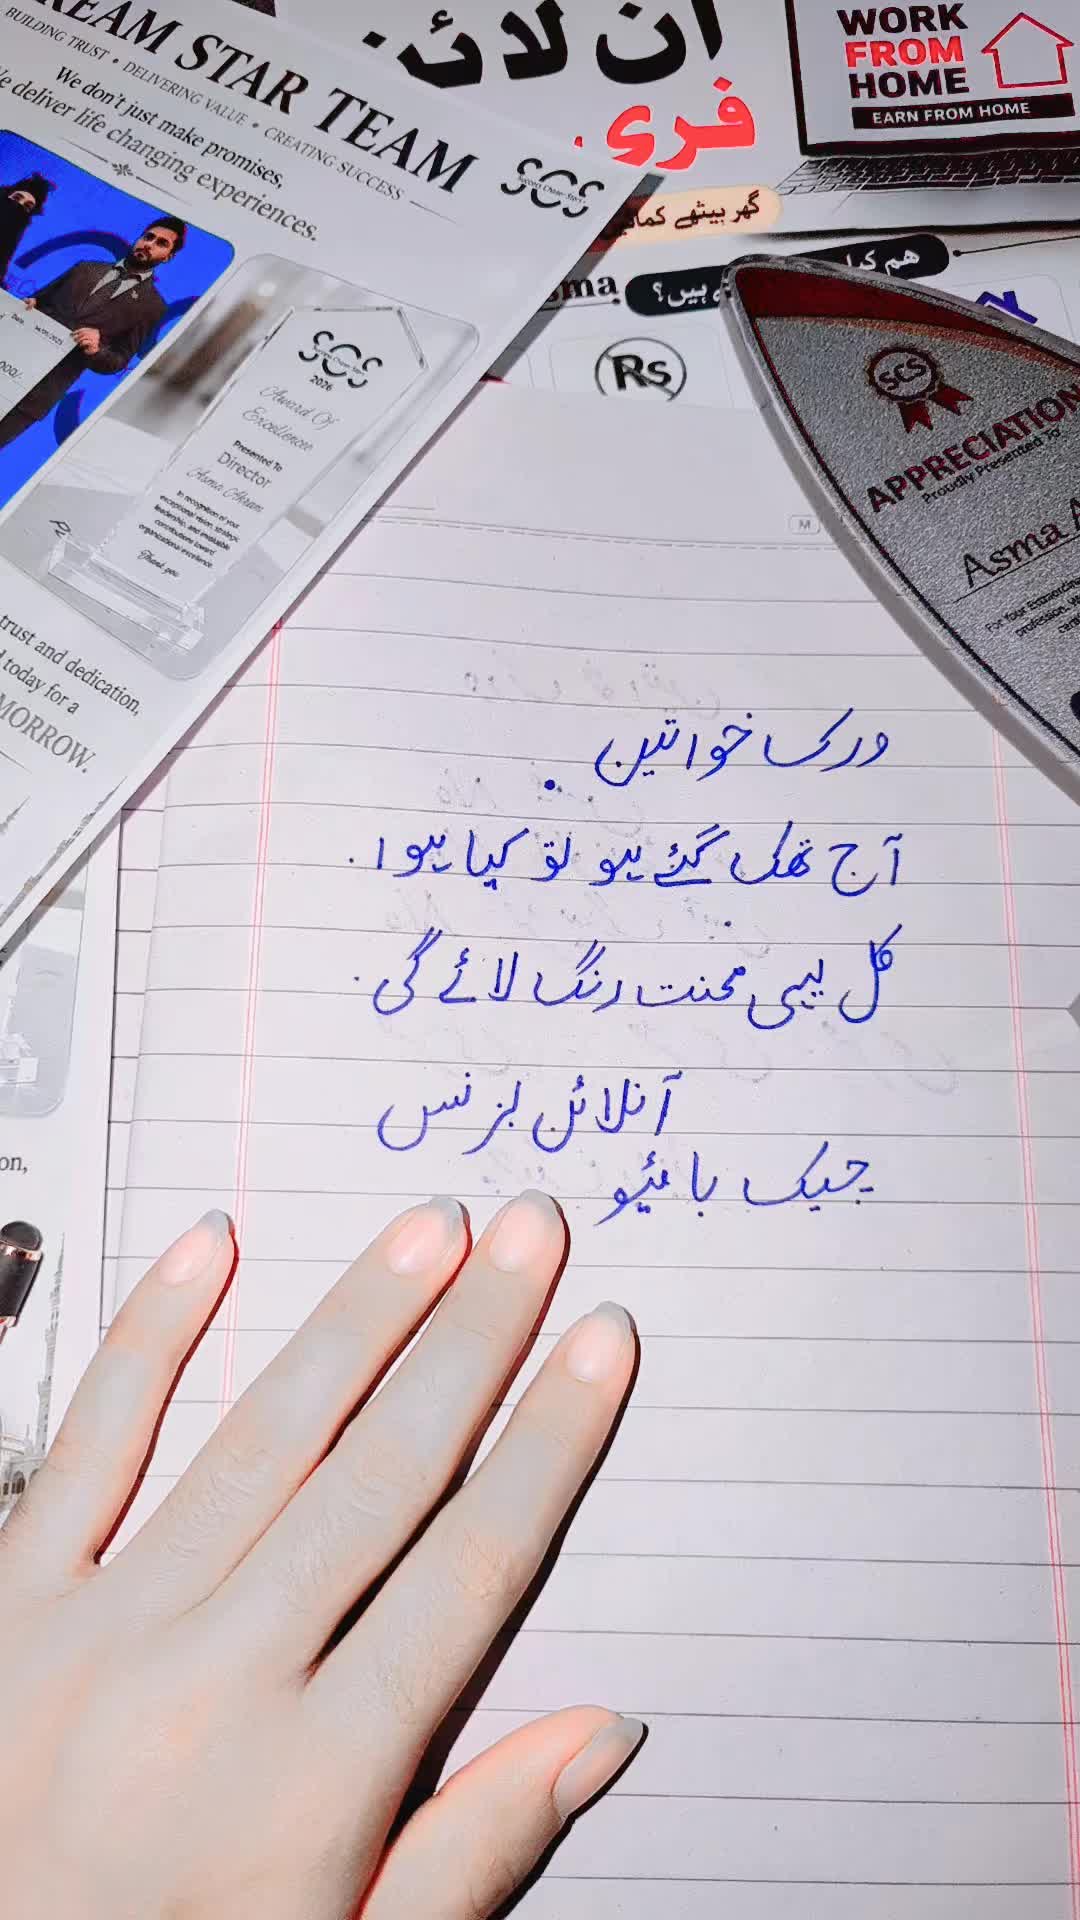 REAM STAR TEAM
BUILDING TRUST • DELIVERING VALUE • CREATING SUCCESS
We don't just make promises,
We deliver life changing experiences.
SCS
SCS
2026
Award Of
Excellence
Presented To
Director
Asma Akram
In recognition of your
exceptional vision, strategic
leadership, and invaluable
contributions toward
organizational excellence.
Thank you
trust and dedication,
today for a
MORROW.
on,
آن لائن
فری
گھر بیٹھے کمائیں
WORK
FROM
HOME
EARN FROM HOME
ہم کیا
ہیں؟
sma
Rs
SCS
APPRECIATION
Proudly Presented To
Asma A
For Your Extraordin
profession
M
ورکسا خواتین
آج تھک گئے ہو تو کیا ہوا.
کل یہی محنت رنگ لائے گی.
آنلائن بزنس
چیک بائیو